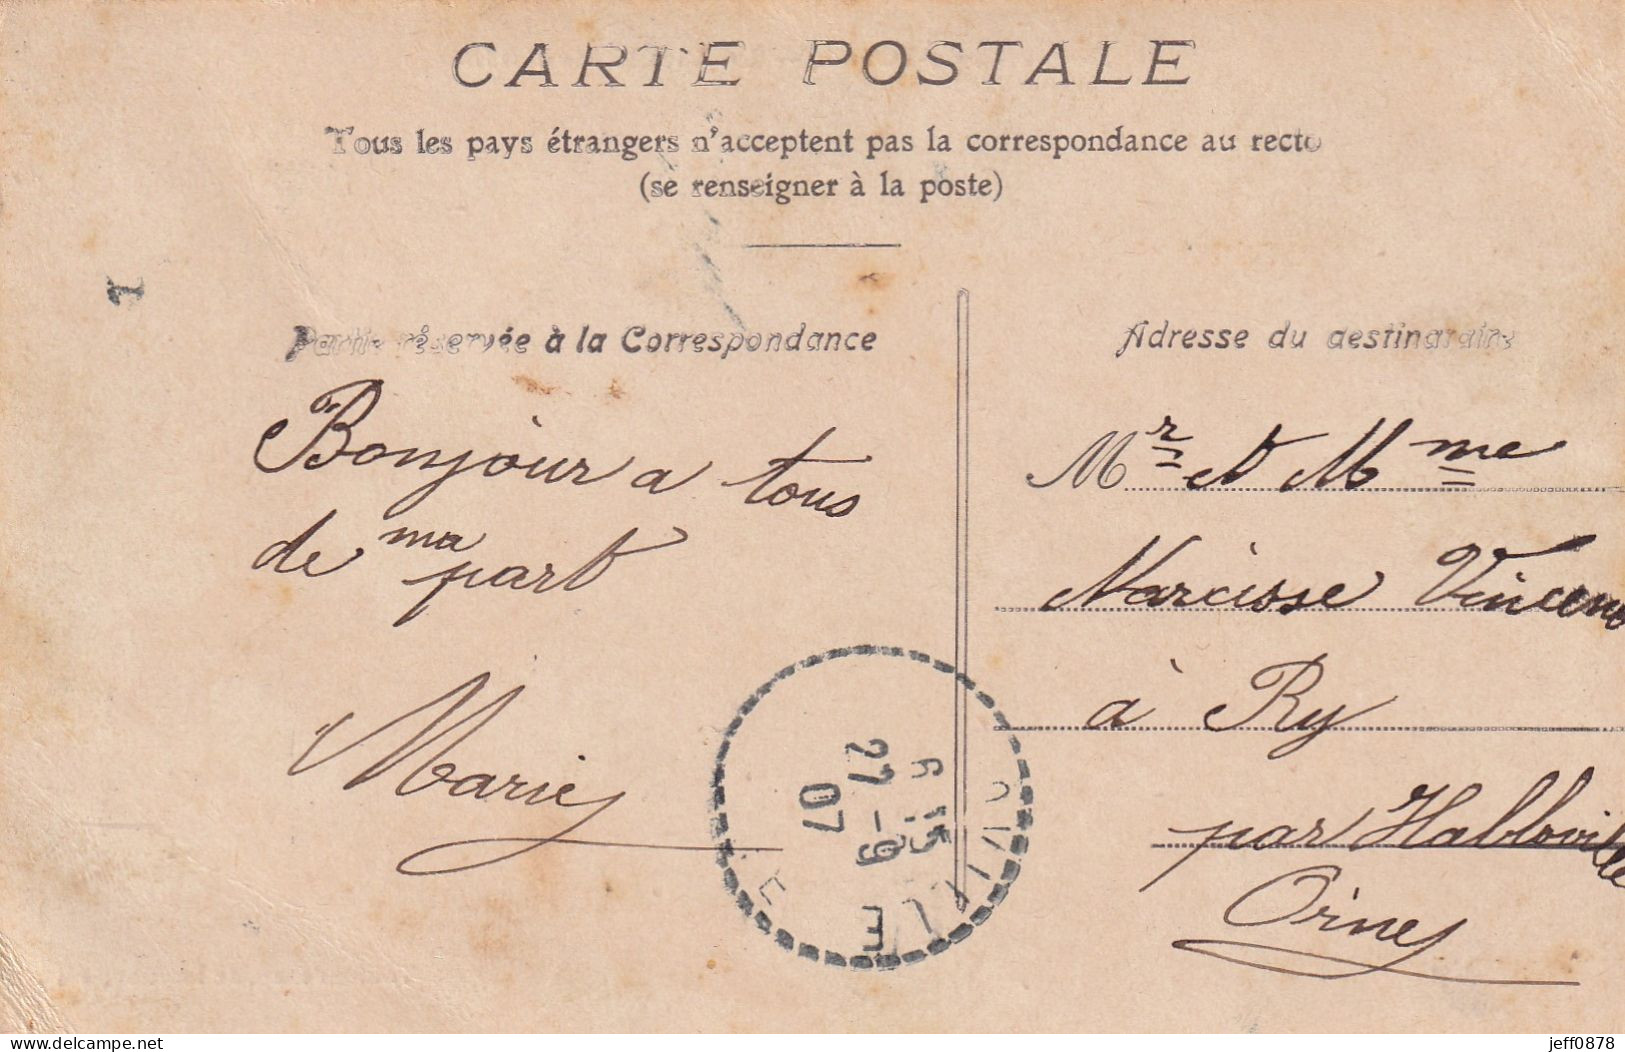 CARTE POSTALE
Tous les pays étrangers n'acceptent pas la correspondance au recto
(se renseigner à la poste)
1
Partie réservée à la Correspondance
Bonjour a tous
de ma part
Marie
Adresse du destinataire
Mr et Mme
Narcisse Vincent
à Ry
par Habloville
Orne
6 15
27 - 9
07
E
www.delcampe.net
jeff0878